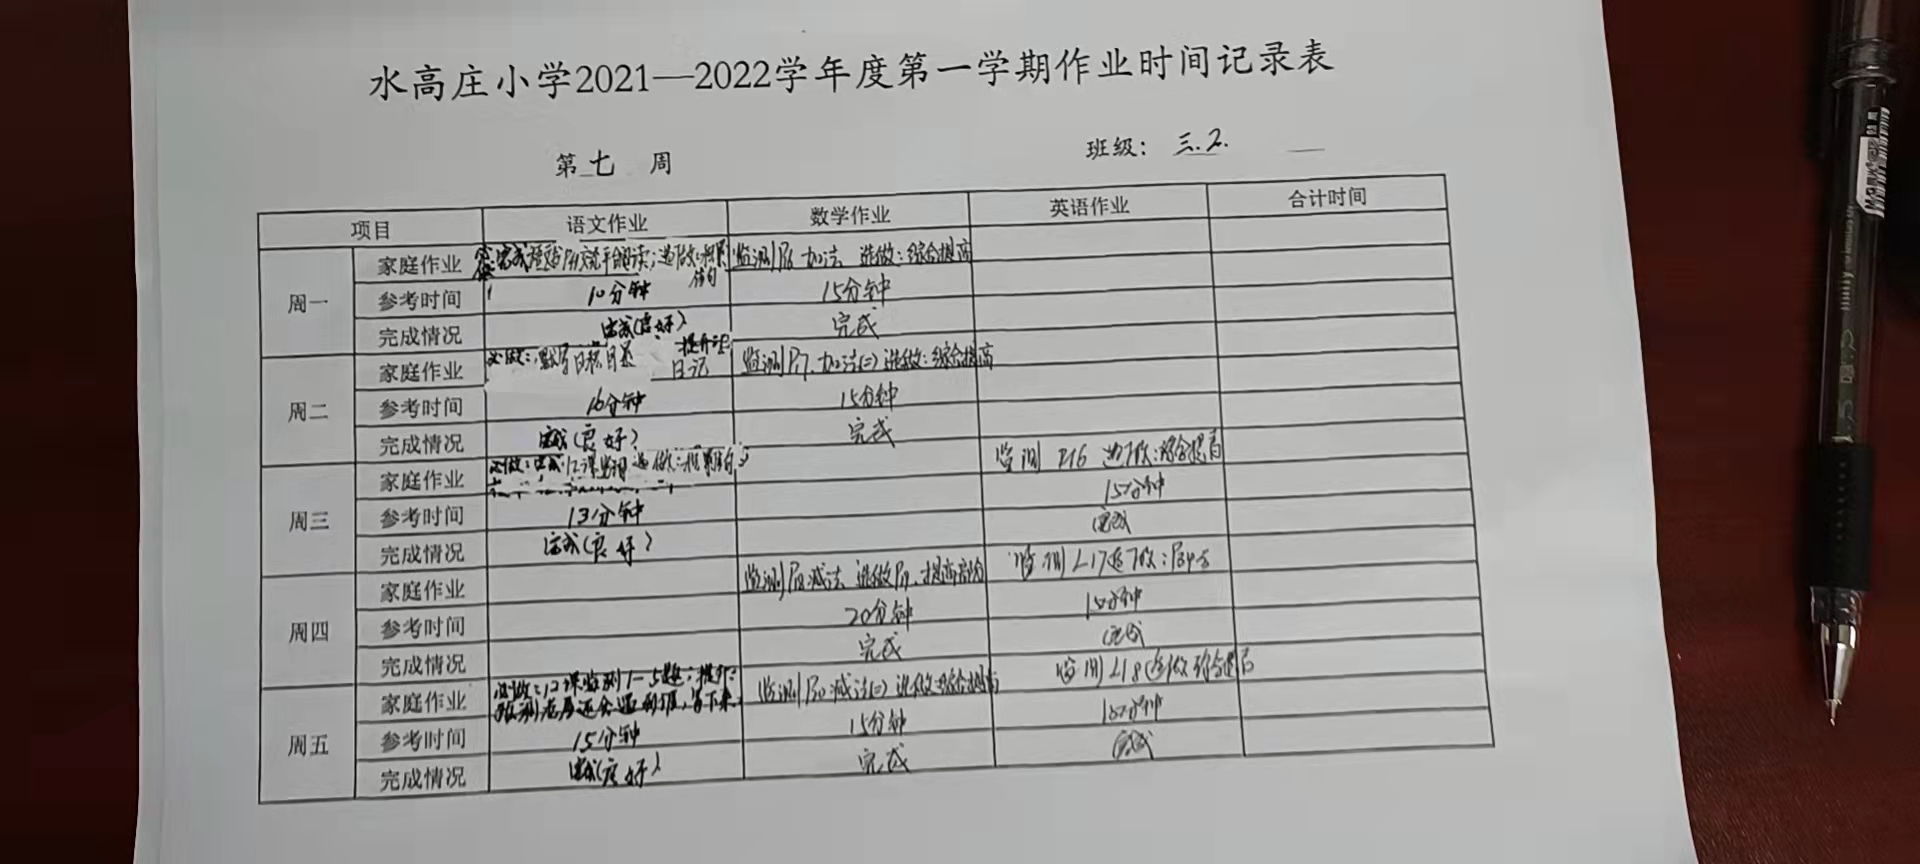 水高庄小学2021—2022学年度第一学期作业时间记录表
第 七 周 班级: 三.2.
项目 语文作业 数学作业 英语作业 合计时间
周一
家庭作业 监测P6 加法 选做:综合提高
参考时间 10分钟 15分钟
完成情况 完成(良好) 完成
周二
家庭作业 必做: 日记 监测P7.加法(二) 选做:综合提高
参考时间 10分钟 15分钟
完成情况 完成(良好) 完成
周三
家庭作业 必做:完成12课监测 选做: 监测 选做:综合提高
参考时间 13分钟 15分钟
完成情况 完成(良好) 完成
周四
家庭作业 监测P8减法 选做P9.提高 监测L17选做:
参考时间 20分钟 15分钟
完成情况 完成 完成
周五
家庭作业 必做:12课监测1-5题; 写下来. 监测P10减法(二) 选做:综合提高 监测L18选做综合提高
参考时间 15分钟 15分钟 15分钟
完成情况 完成(良好) 完成 完成